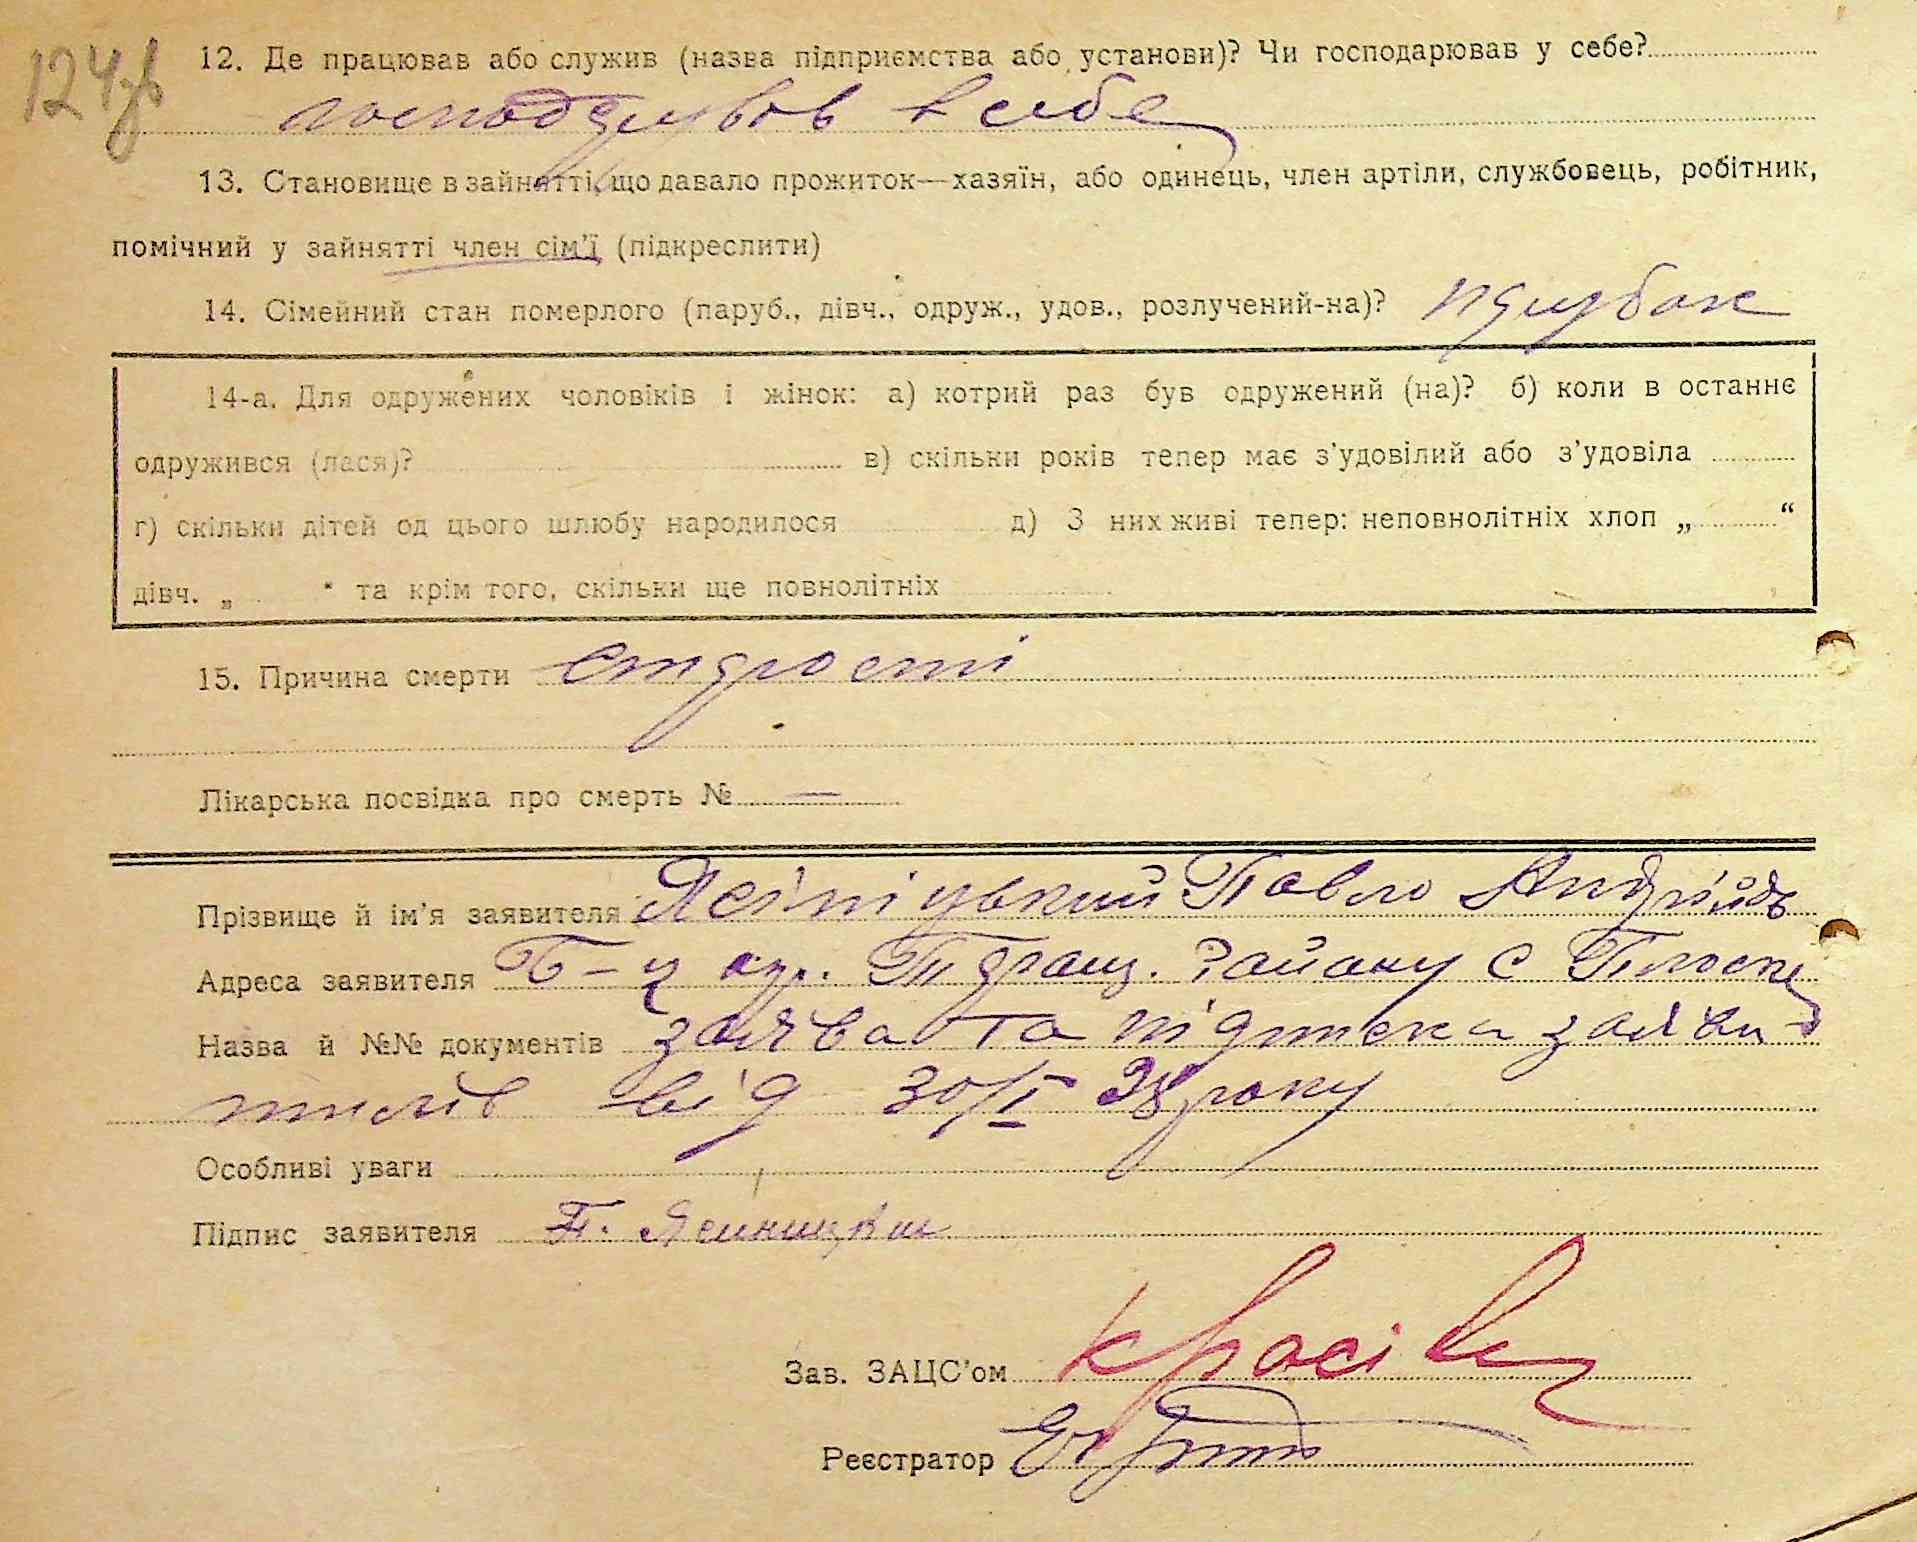 124зв
12. Де працював або служив (назва підприємства або установи)? Чи господарював у себе?
господарував в себе
13. Становище в зайнятті, що давало прожиток—хазяїн, або одинець, член артіли, службовець, робітник,
помічний у зайнятті член сім'ї (підкреслити)
14. Сімейний стан померлого (паруб., дівч., одруж., удов., розлучений-на)? парубок
14-а. Для одружених чоловіків і жінок: а) котрий раз був одружений (на)? б) коли в останнє
одружився (лася)? в) скільки років тепер має з'удовілий або з'удовіла
г) скільки дітей од цього шлюбу народилося д) З них живі тепер: неповнолітніх хлоп „ “
дівч. „ " та крім того, скільки ще повнолітніх
15. Причина смерти старости
Лікарська посвідка про смерть № —
Прізвище й ім'я заявителя Павло
Адреса заявителя Б-ц окр. району с
Назва й №№ документів заява та підписка заяви-
телів від 30/I 28 року
Особливі уваги
Підпис заявителя П.
Зав. ЗАЦС'ом
Реєстратор